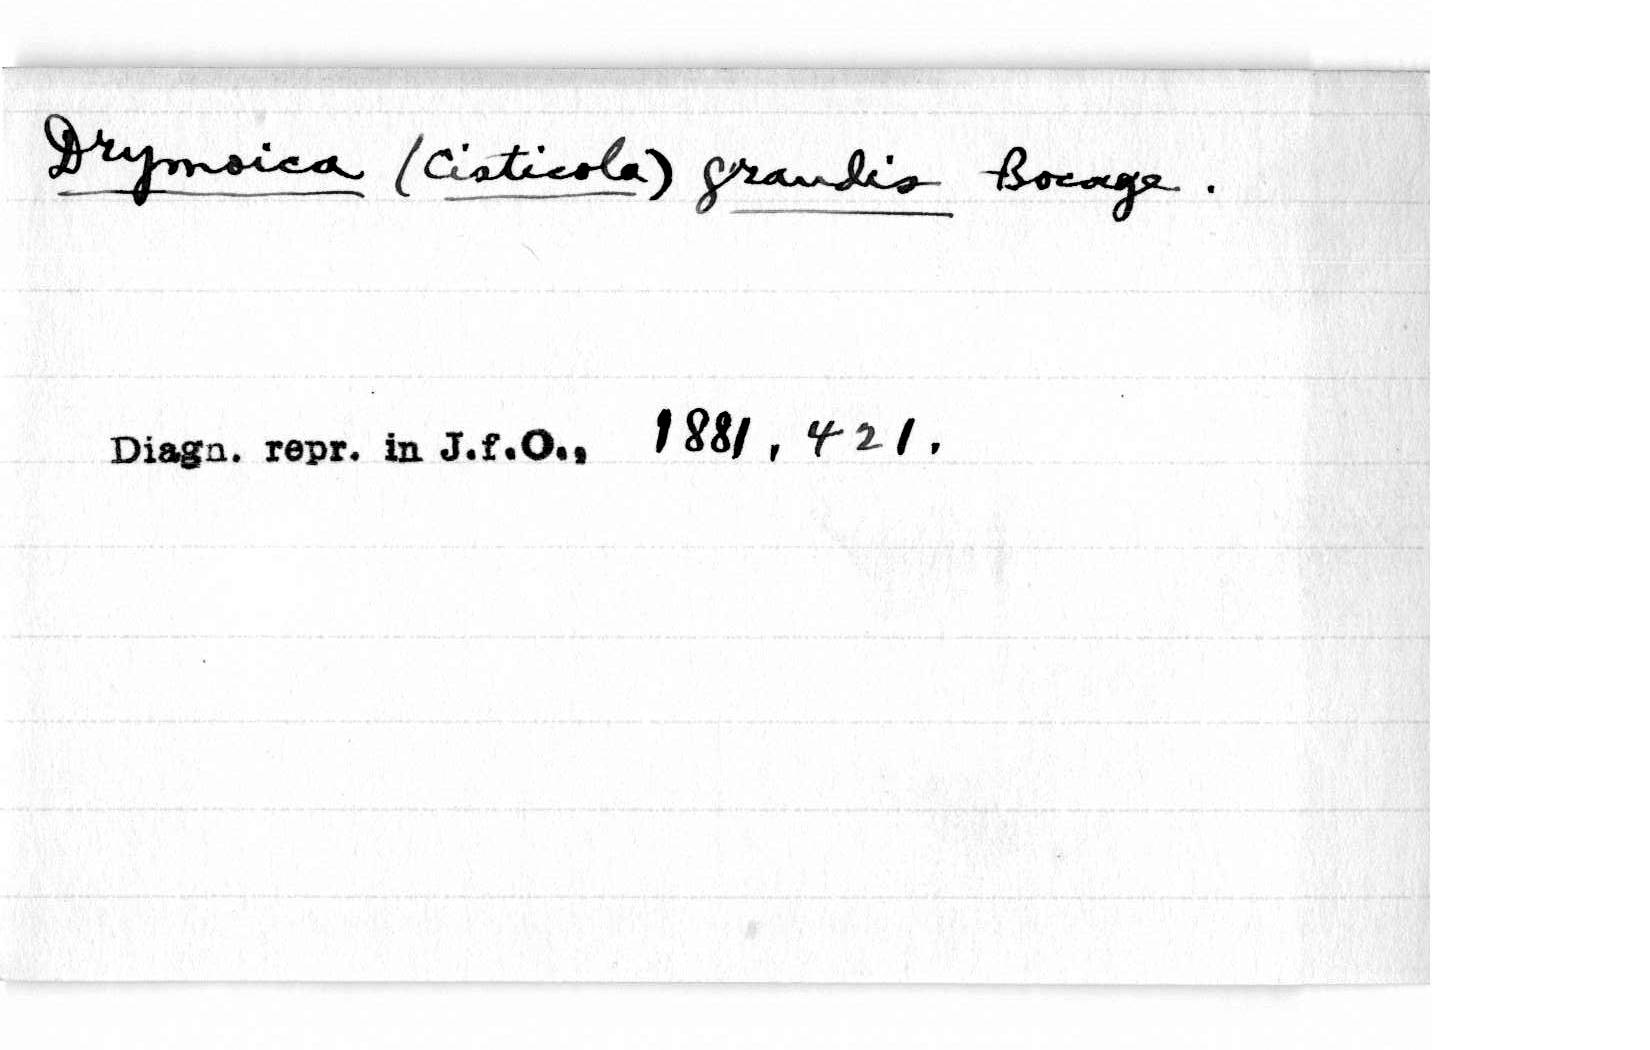 Drymoica (Cisticola) grandis Bocage.
Diagn. repr. in J.f.O., 1881, 421.